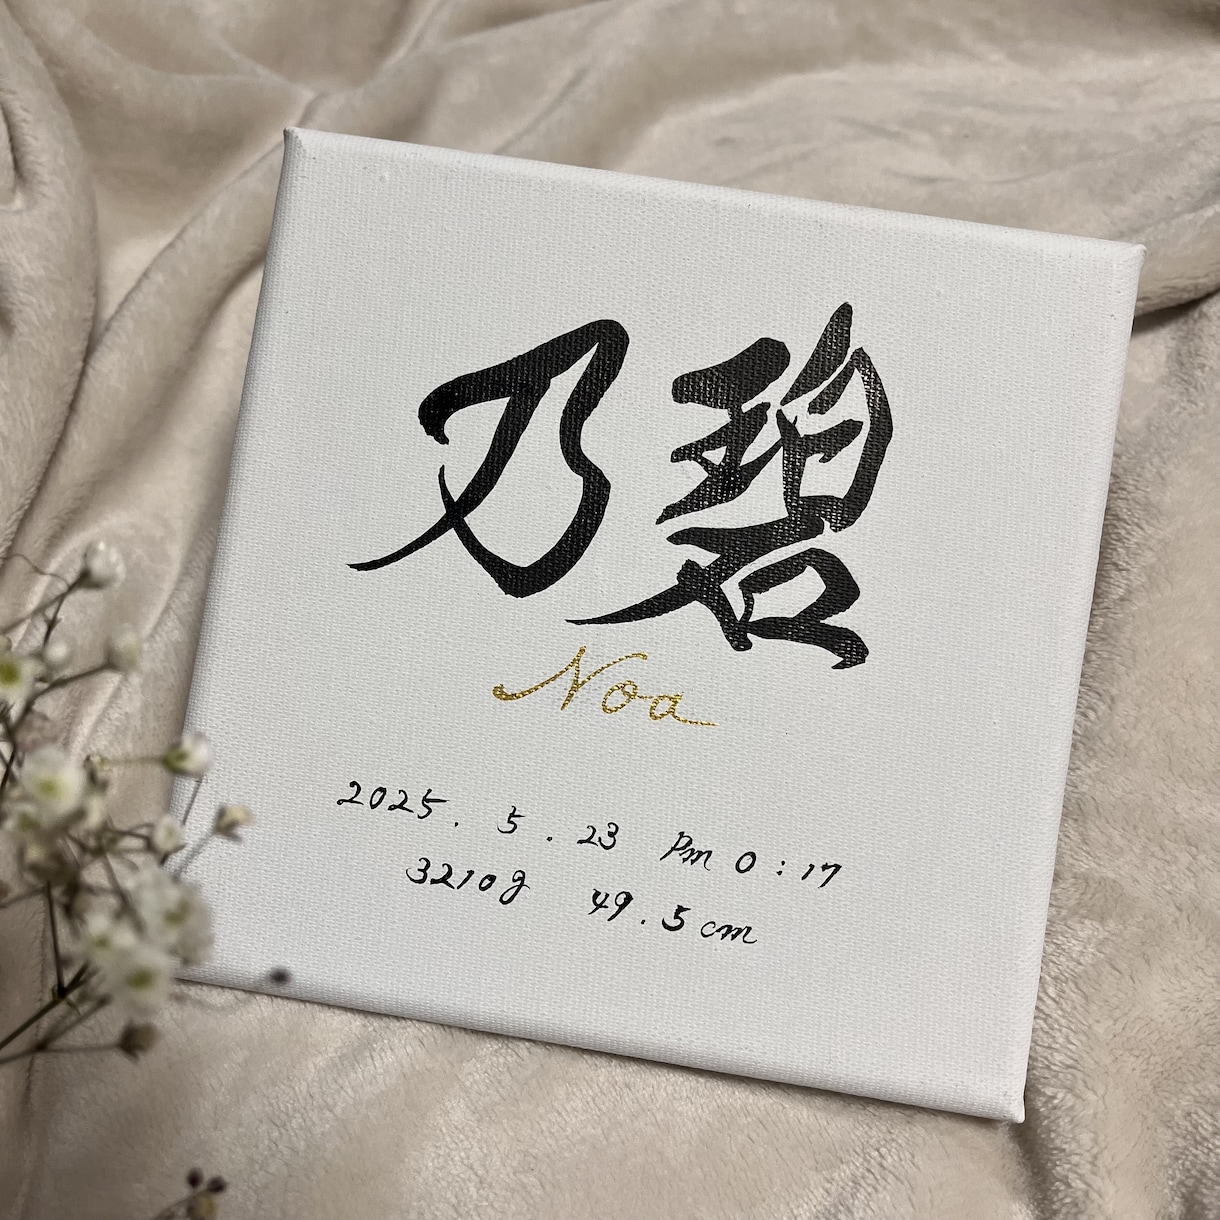 乃碧
Noa
2025. 5. 23 Pm 0:17
3210g 49.5cm